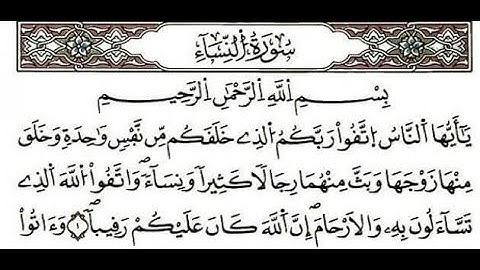 سُورَةُ النِّسَاءِ
بِسْمِ اللَّهِ الرَّحْمَٰنِ الرَّحِيمِ
يَٰأَيُّهَا النَّاسُ اتَّقُوا رَبَّكُمُ الَّذِي خَلَقَكُم مِّن نَّفْسٍ وَاحِدَةٍ وَخَلَقَ
مِنْهَا زَوْجَهَا وَبَثَّ مِنْهُمَا رِجَالًا كَثِيرًا وَنِسَاءً وَاتَّقُوا اللَّهَ الَّذِي
تَسَّاءَلُونَ بِهِ وَالْأَرْحَامَ إِنَّ اللَّهَ كَانَ عَلَيْكُمْ رَقِيبًا ١ وَءَاتُوا